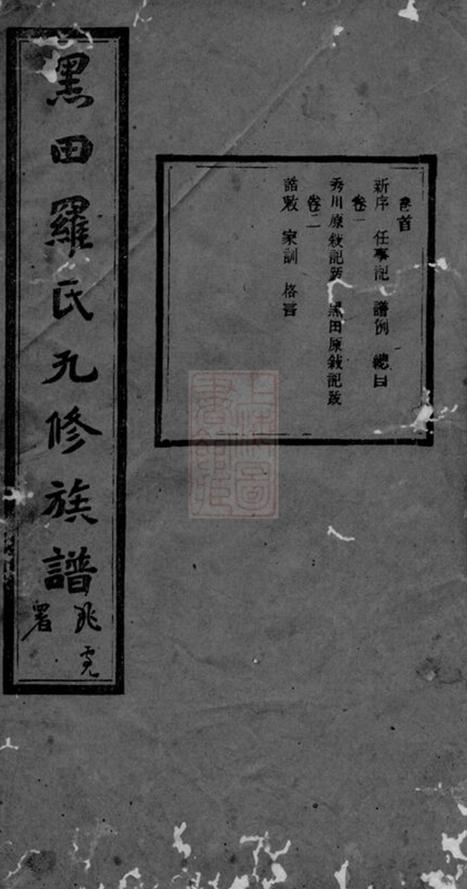 黑田羅氏九修族譜
署
卷首
新序 任事記 譜例 總目
卷一
秀川原敘記跋 黑田原敘記跋
卷二
誥敕 家訓 格言
上海圖書館藏